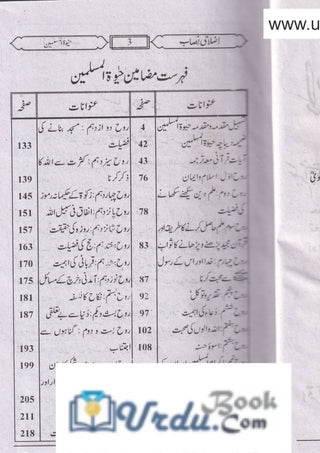 www.u
اصلاحی نصاب
3
حیٰوۃ المسلمین
فہرست مضامین حیٰوۃ المسلمین
عنوانات
صفحہ
عنوانات
صفحہ
تسہیل مقدمہ و مقدمہ حیٰوۃ المسلمین
4
ضمیمہ: دیباچہ حیٰوۃ المسلمین
42
آیات قرآنی معہ ترجمہ
43
روح اوّل: اسلام و ایمان
76
روح دوم: علم دین سیکھنے سکھانے
کی فضیلت
78
روح سوم: علم حاصل کرنے کا طریقہ اور
قرآن مجید پڑھنے و پڑھانے کا ثواب
83
روح چہارم: خدا اور اس کے رسول
سے محبت کرنا
87
روح پنجم: تقدیر و توکل
92
روح ششم: دُعا کی اہمیت
97
روح ہفتم: اللہ والوں کی صحبت
102
روح ہشتم: اسوۂ حسنہ
108
روح دوازدہم: مسجد بنانے کی
فضیلت
133
روح سیزدہم: کثرت سے اللہ کا
ذکر کرنا
139
روح چہاردہم: زکوٰۃ کے حکیمانہ رموز
145
روح پانزدہم: انفاق فی سبیل اللہ
151
روح شانزدہم: روزہ کی حقیقت
157
روح ہفدہم: حج کی فضیلت
163
روح ہشتدہم: قربانی کی اہمیت
170
روح نوزدہم: آمدنی و خرچ کے مسائل
175
روح بستم: نکاح کا فلسفہ
181
روح بست و یکم: دُنیا سے بے تعلقی
187
روح بست و دوم: گناہوں سے
اجتناب
193
199
205
211
218
Urdu Book
.Com